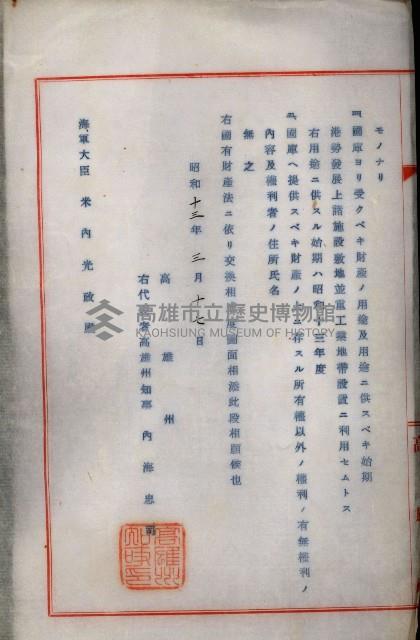 モノナリ
一、國庫ヨリ受クベキ財産ノ用途及用途ニ供スベキ始期
港勢發展上諸施設敷地並重工業地帶設置ニ利用セムトス
右用途ニ供スル始期ハ昭和十三年度
二、國庫ヘ提供スベキ財産ノ上ニ存スル所有權以外ノ權利ノ有無權利ノ
内容及權利者ノ住所氏名
無之
右國有財産法ニ依リ交換相成度圖面相添此段相願候也
昭和十三年三月十七日
高雄州
右代表者高雄州知事 内海忠司
海軍大臣 米内光政殿
高雄市立歷史博物館
KAOHSIUNG MUSEUM OF HISTORY